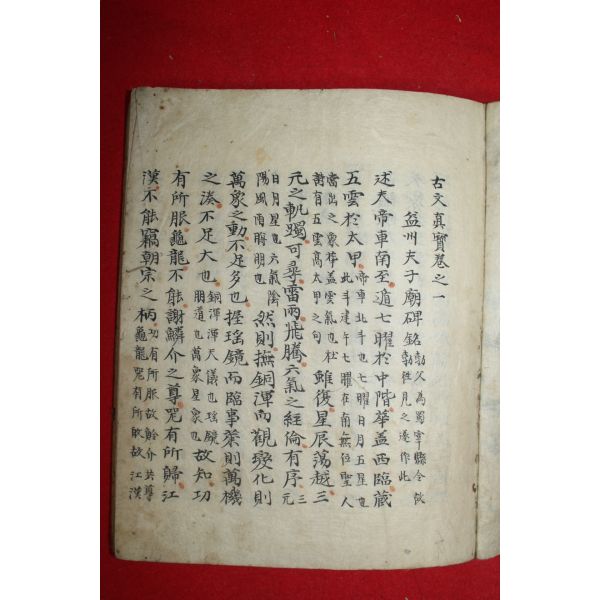 古文眞寶卷之一
益州夫子廟碑銘 勃父爲蜀寧縣令故 勃往見之遂作此
述夫帝車南至遁七曜於中階華盖西臨藏
五雲於太甲 帝車北斗也七曜日月五星也 此斗建午七曜在南無位聖人
當出之象華盖雲氣也杜 詩有五雲高太甲之句 雖復星辰蕩越三
元之軌躅可尋雷雨飛騰六氣之経倫有序 三 元
日月星也六氣陰 陽風雨晦明也 然則撫銅渾而觀變化則
萬象之動不足多也握瑤鏡而臨事業則萬機
之湊不足大也 銅渾渾天儀也瑤鏡 明道也萬象星象也 故知功
有所服龜龍不能謝鱗介之尊咒有所歸江
漢不能竊朝宗之柄 功有所服故鱗介共尊 龜龍咒有所歸故江漢